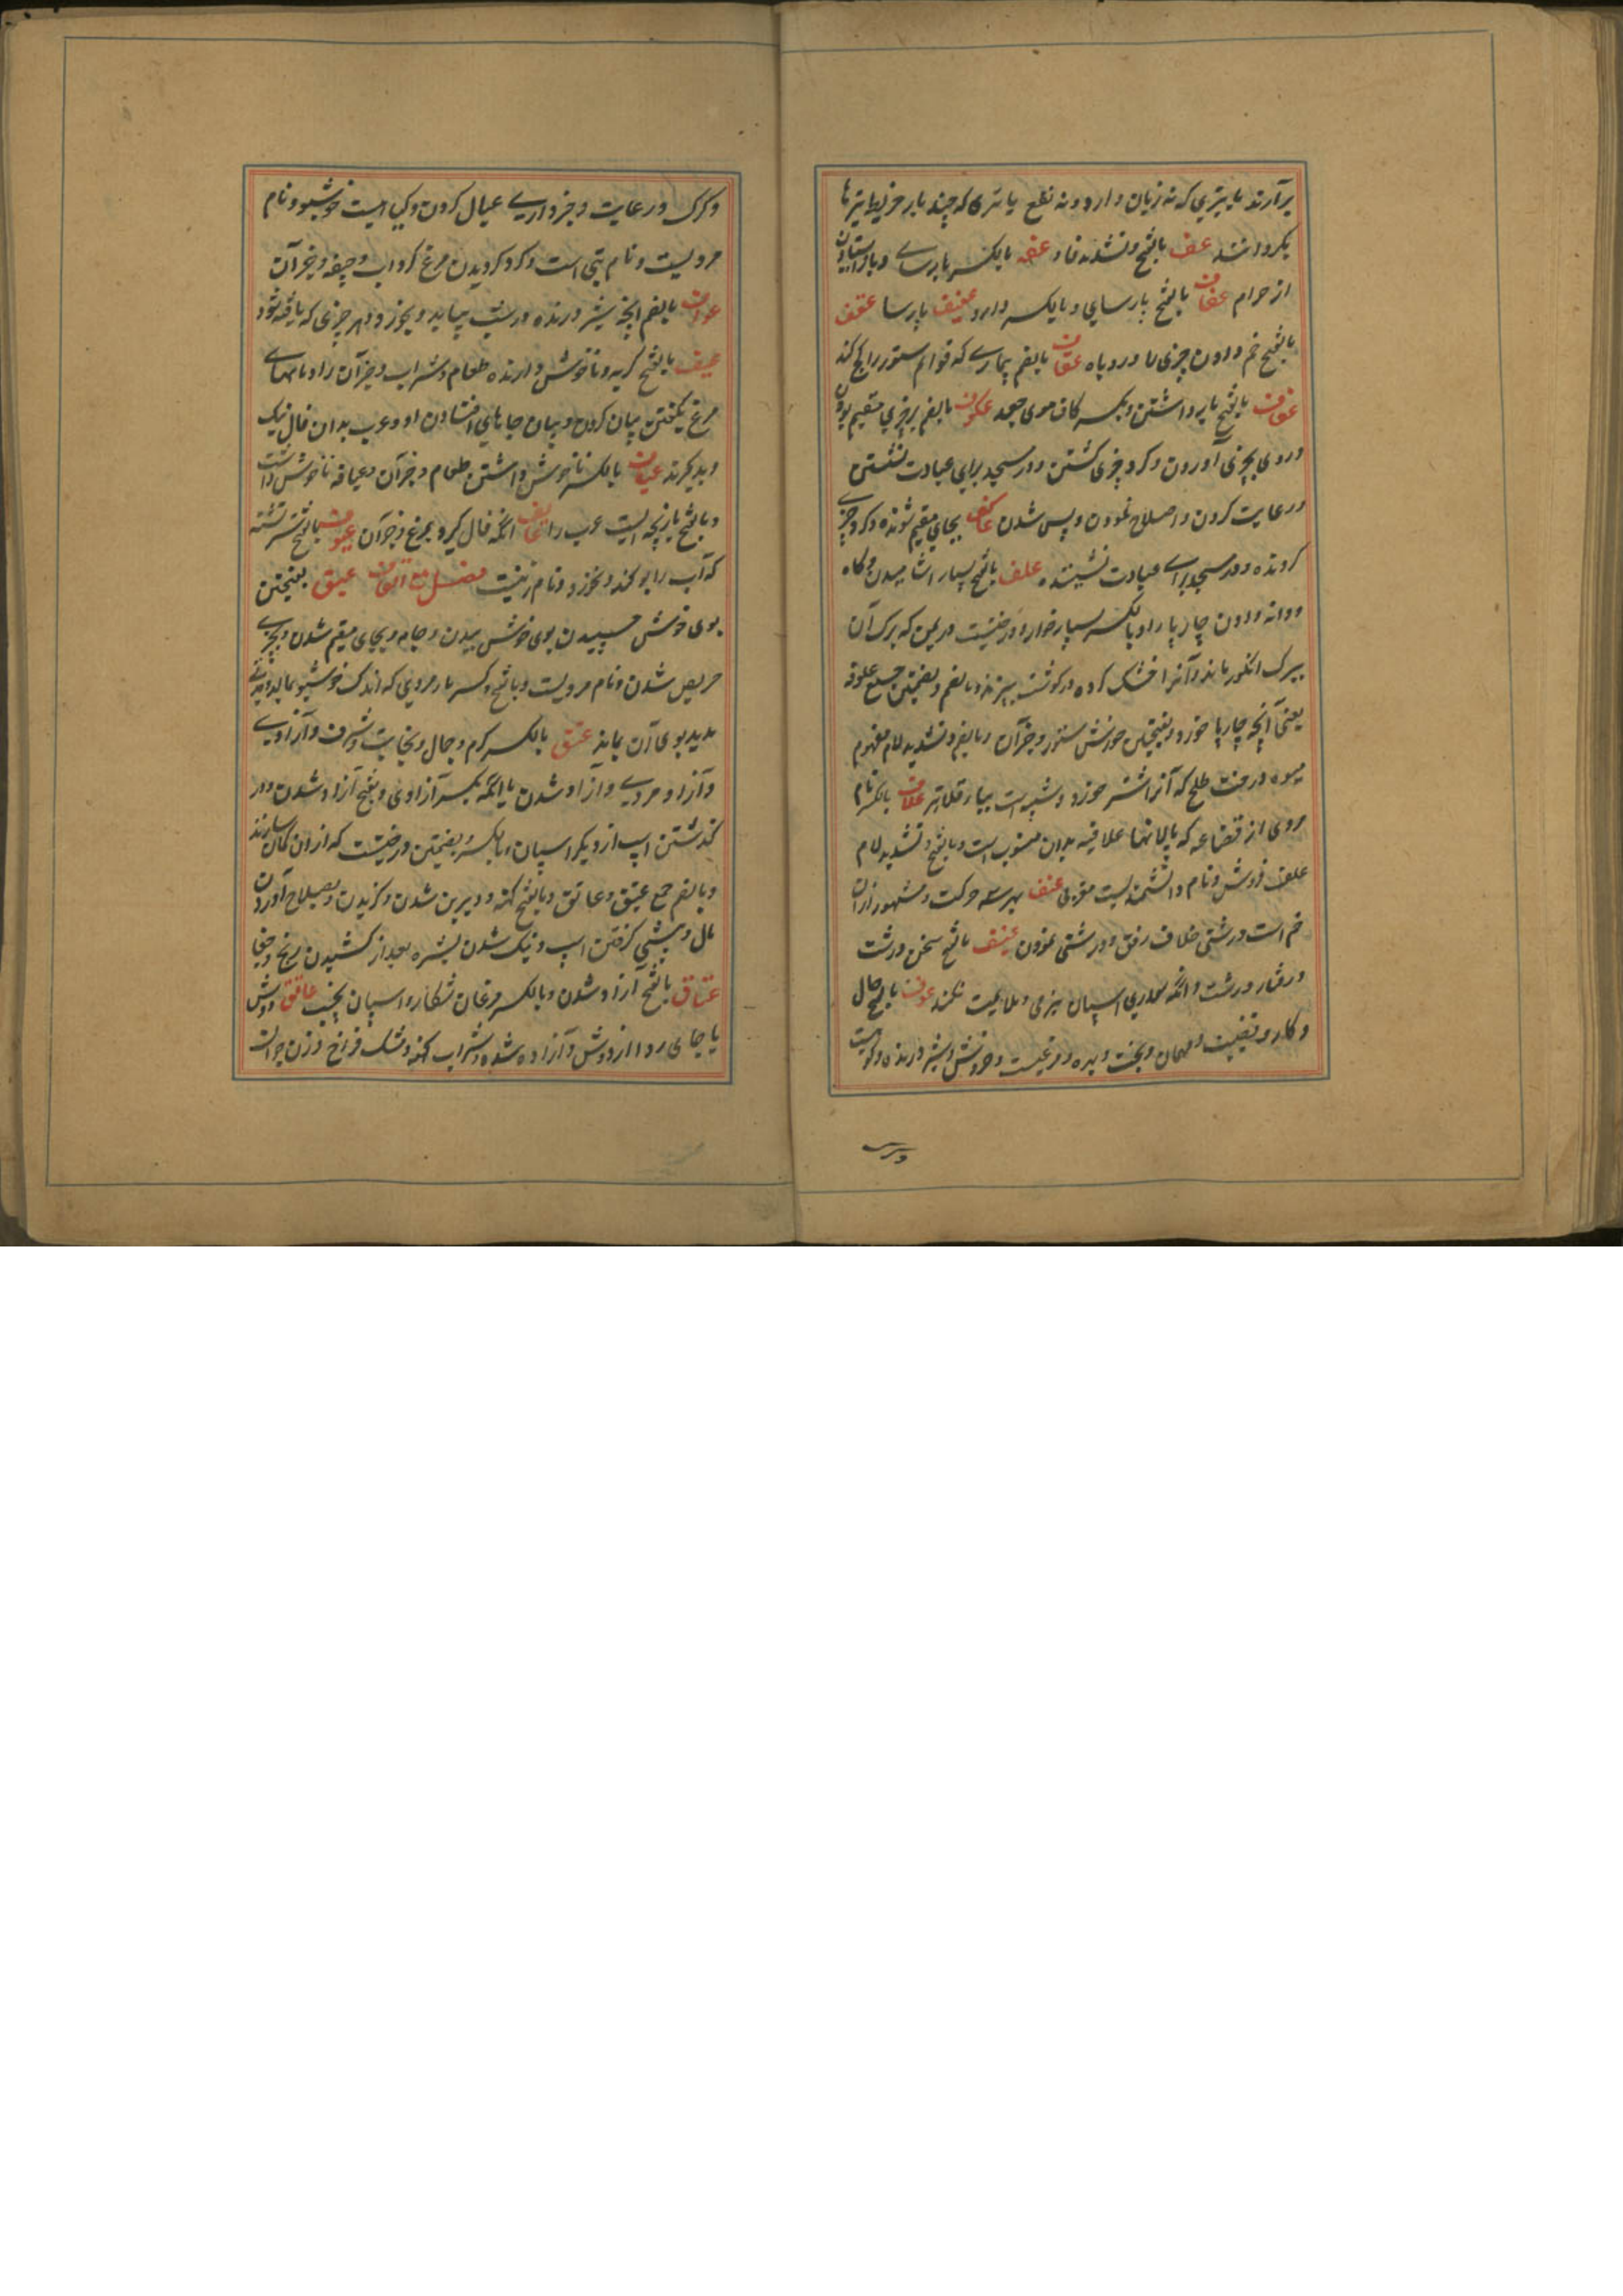 برآرند یا تیری که نه زیان دارد و نه نفع یا تیری که چند بار خریطه تیرها
بگردانند عف بالفتح و تشدید فا و عفه بالکسر پارسایی و بازایستادن
از حرام عفاف بالفتح پارسایی و بالکسر دارو عفیف پارسا عقف
بالفتح خم دادن چیزی را و روباه عقاف بالضم بیماری که قوایم ستور را کج کند
عکف بالفتح بازداشتن و بکسر کاف موی جعد عکوف بالضم بر چیزی مقیم بودن
و روی بچیزی آوردن و گرد چیزی گشتن و در مسجد برای عبادت نشستن
و رعایت کردن و اصلاح نمودن و پس شدن عاکف بجای مقیم شونده و گرد چیزی
گردنده و در مسجد برای عبادت نشیننده علف بالفتح بسیار آشامیدن و کاه
و دانه دادن چارپا را و بالکسر بسیار خوار و درختیست در یمن که برگ آن
ببرگ انگور ماند و آنرا خشک کرده در گوشت پزند و بالضم و بضمتین جمع علوفه
یعنی آنچه چارپا خورد و بفتحتین خورش ستور و جز آن و بالضم و تشدید لام مفهوم
میوه درخت طلح که آنرا شتر خورد و شبیه است بباقلا تر علاف بالکسر نام
مردی از قضاعه که پالانها علافیه بدان منسوب است و بالفتح و تشدید لام
علف فروش و نام دانشمندیست معتزلی عنف بهر سه حرکت و مشهور از آن
ضم است درشتی خلاف رفق و درشتی نمودن عنیف بالفتح سخن درشت
و رفتار درشت و آنکه سواری اسپان بنرمی و ملایمت نکند عوف بالفتح حال
و کار و نضیب و مهمان و بخت و بهره و مرغیست و خروس و شیر درنده و کوهیست
و گرگ و رعایت و خبرداری عیال کردن و گیاهیست خوشبو و نام
مردیست و نام بتی است و گرد گردیدن مرغ گرد آب و جیفه و جز آن
عواف بالضم آنچه شیر درنده در شب بیابد و بخورد و هر چیزی که یافته شود
عیف بالفتح کریه و ناخوش دارنده طعام و شراب و جز آن را و نامهای
مرغ گفتن بیان کردن و بیان جاهای افتادن او و عرب بدان فال نیک
و بد گیرند عیاف بالکسر ناخوش داشتن طعام و جز آن و عیافه ناخوش داشت
و بالفتح بازیچه ایست عرب را عایف آنکه فال گیرد بمرغ و جز آن عیوف بالفتح شتر تشنه
که آب را بو کند و نخورد و نام زنیست فصل مع القاف عبق بفتحتین
بوی خوش چسپیدن بوی خوش ببدن و جامه و بجای مقیم شدن و بچیزی
حریص شدن و نام مردیست و بالفتح و کسر با مردی که اندک خوشبو بمالد و مدتی
مدید بوی آن بماند عتق بالکسر کرم و جمال و نجابت و شرف و آزادی
و آزاد مردی و ازاد شدن یا آنکه بکسر آزادی و بفتح آزاد شدن و در
گذشتن اسپ از دیگر اسپان و بالکسر و بضمتین درختیست که از آن کمان سازند
و بالضم جمع عتیق و عاتق و بالفتح کهنه و دیرین شدن و گزیدن و بصلاح آوردن
مال و پیشی گرفتن اسپ و نیک شدن بشره بعد از کشیدن رنج و جفا
عتاق بالفتح آزاد شدن و بالکسر مرغان شکار و اسپان نجیب عاتق دوش
یا جای ردا از دوش و آزاده شده و شراب کهنه و مشک فراخ و زن جوانست
و گرگ